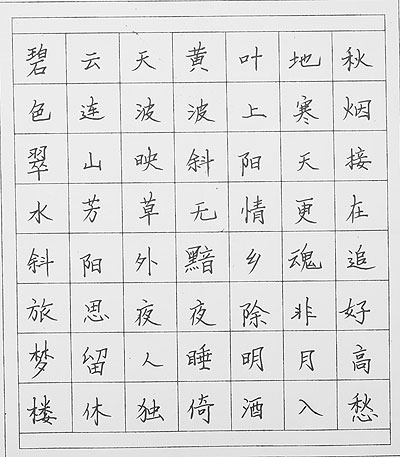 碧云天黄叶地秋
色连波波上寒烟
翠山映斜阳天接
水芳草无情更在
斜阳外黯乡魂追
旅思夜夜除非好
梦留人睡明月高
楼休独倚酒入愁